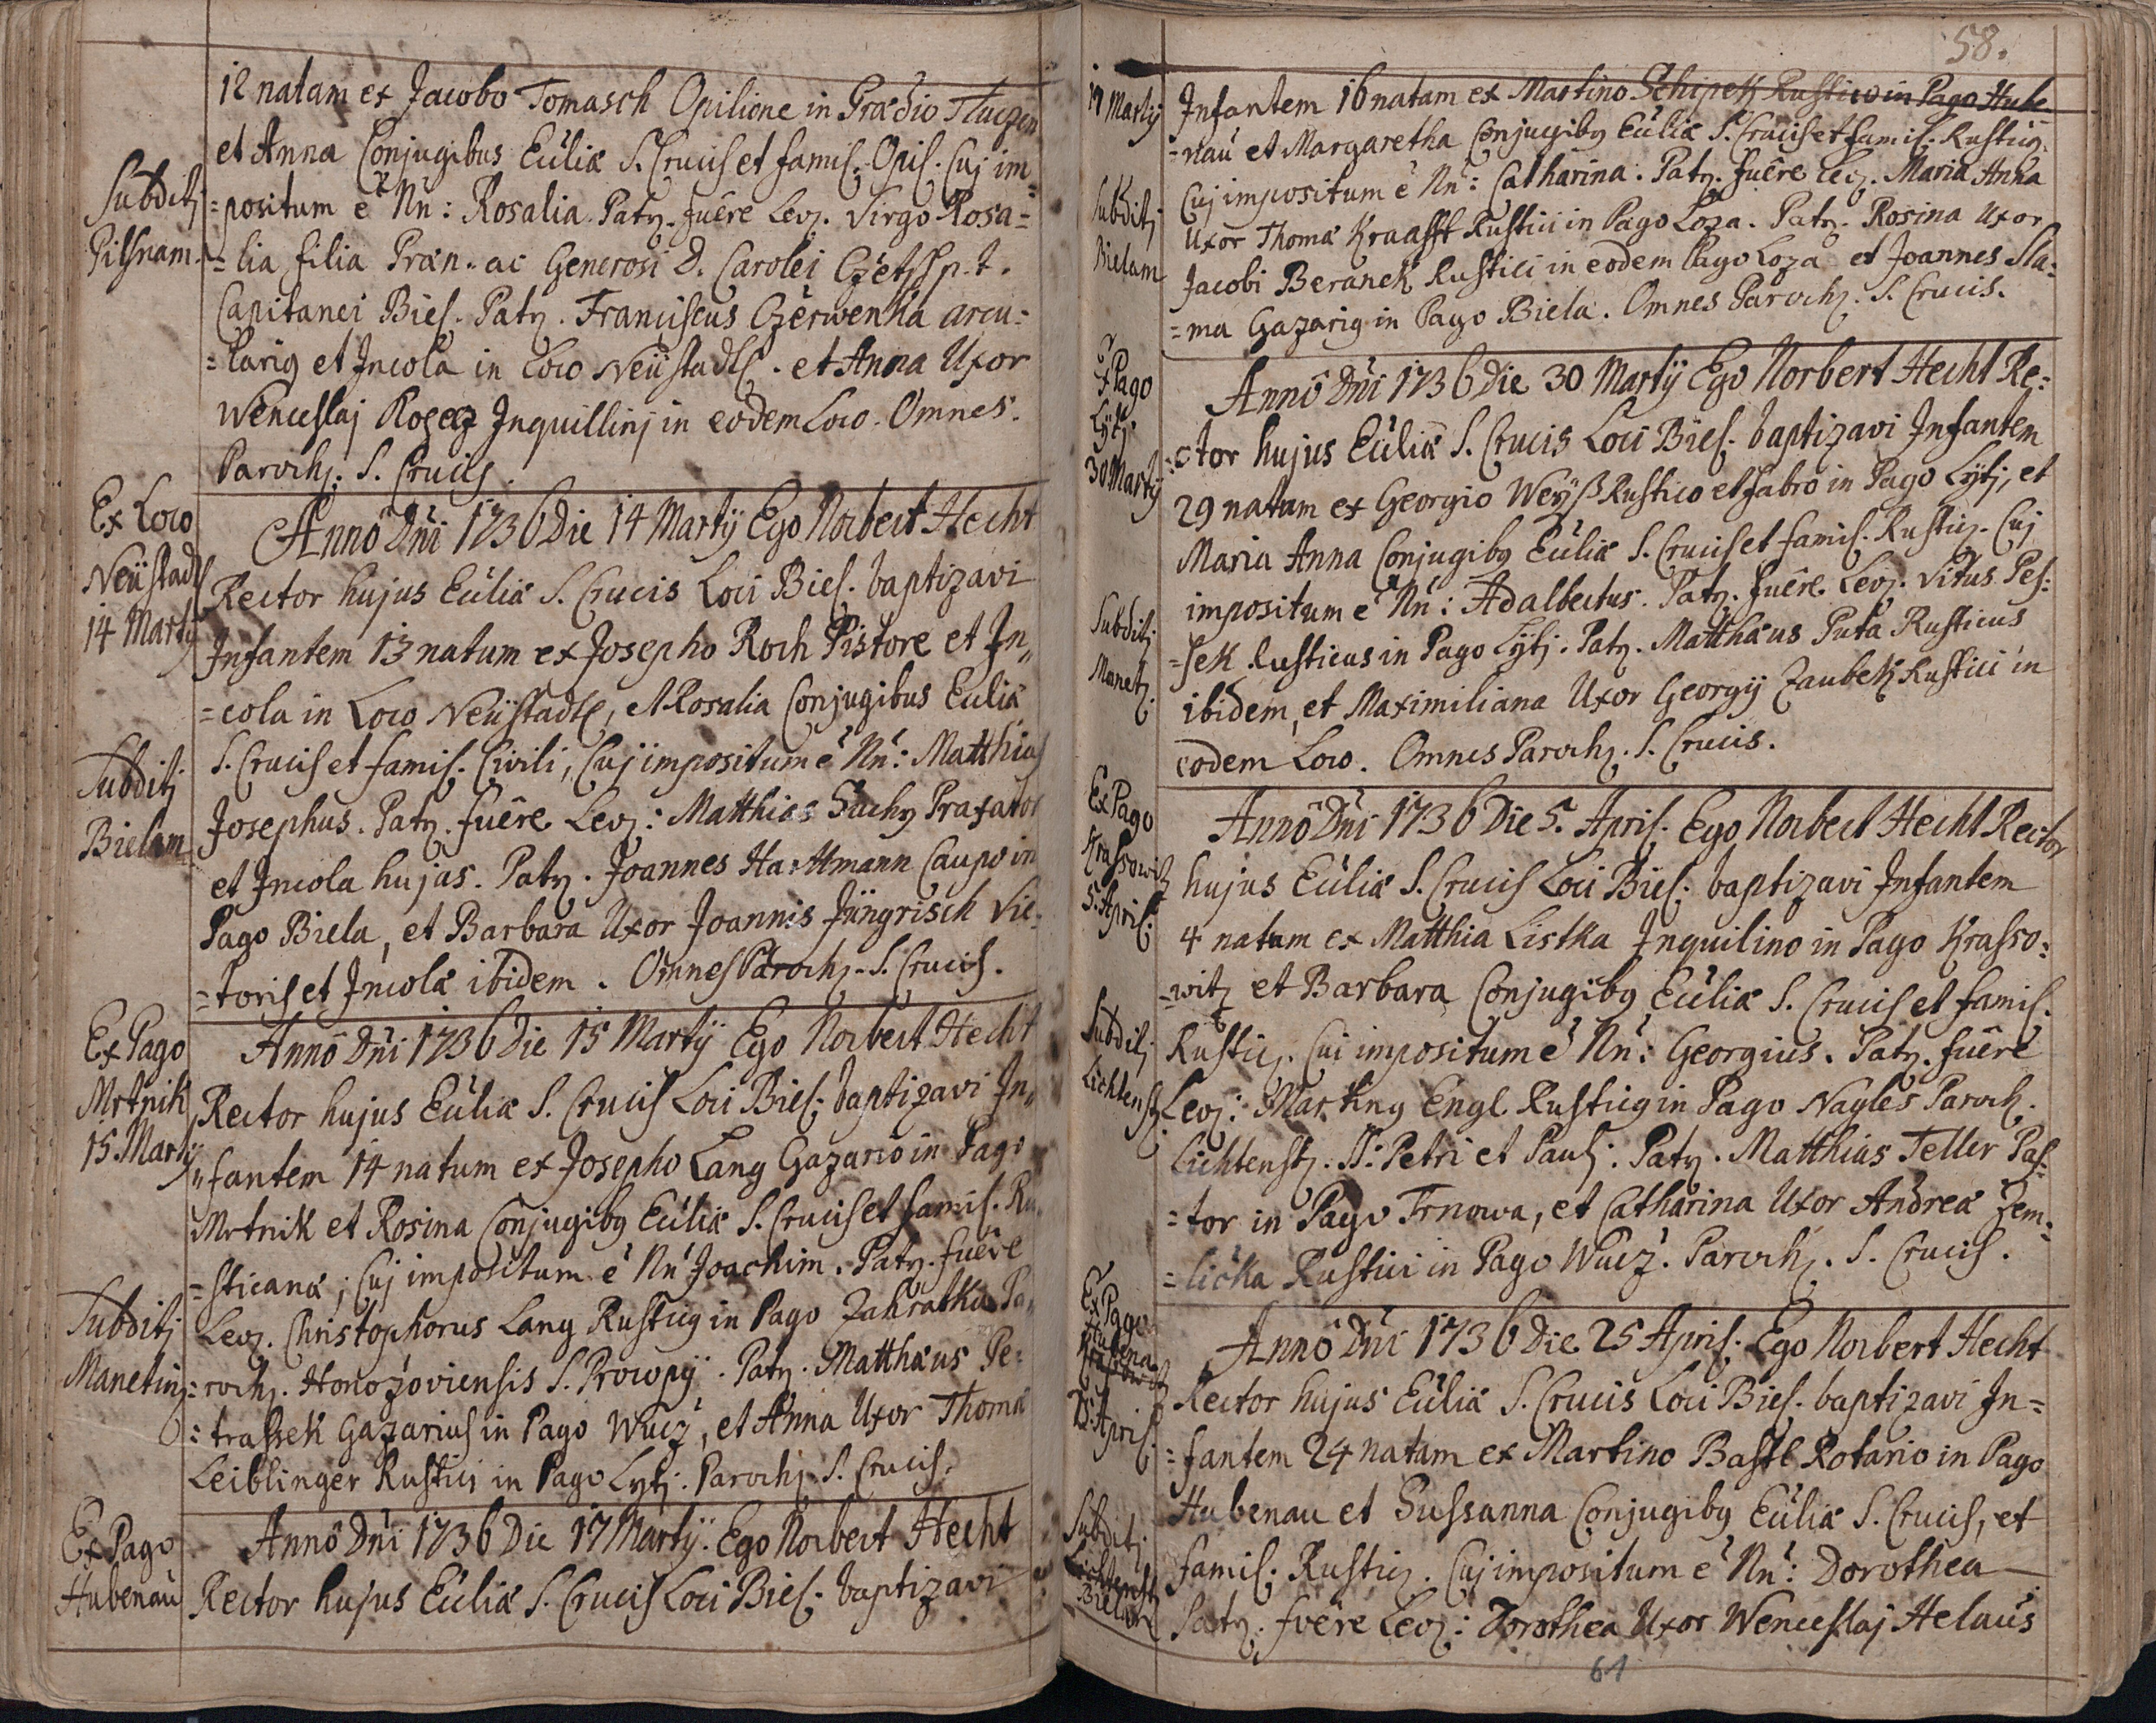 12 natam ex Jacobo Tomasch Opilione in Prædio
et Anna Conjugibus Eccliæ S. Crucis et famil. Opil. Cuj im=
Subditj
=positum e Nn: Rosalia. Patr. fuêre Lev. Virgo Rosa=
Pilsnam.
=lia filia Præn. ac Generosi D. Carolei p. t.
Capitanei Biel. Patr. Franciscus Czerwenka arcu=
=larig et Incola in Loco Neüstadtl. et Anna Uxor
Wenceslaj Inquillinj in eodem Loco. Omnes.
Paroch. S. Crucis.
Ex Loco
Neüstadtl
14 Martij
Anno Dni 1736 Die 14 Martij Ego Norbert Hecht
Rector hujus Eccliæ S. Crucis Loci Biel. baptizavi
Infantem 13 natum ex Josepho Roch Pistore et In„
=cola in Loco Neüstadtl, et Rosalia Conjugibus Eccliæ
S. Crucis et famil. Civili, Cuj impositum e Nn: Matthias
Subditj
Bielam
Josephus. Patr. fuêre Lev: Matthias Suchy Praxator
et Incola hujas. Patr. Joannes Harttmann Caupo in
Pago Biela, et Barbara Uxor Joannis Jüngrisch Vie=
=toris et Incolæ ibidem. Omnes Paroch. S. Crucis.
Ex Pago
Mrtnik
15. Martij
Anno Dni 1736 Die 15 Martij Ego Norbert Hecht
Rector hujus Eccliæ S. Crucis Loci Biel. baptizavi In„
„fantem 14 natum ex Josepho Lang Gazario in Pago
Mrtnik et Rosina Conjugibg Eccliæ S. Crucis et famil. Ru„
=sticanæ; Cuj impositum e Nn Joachim. Patr. fuêre
Subditj
Manetinz
Lev. Christophorus Lang Rusticg in Pago Zahratka Pa„
=roch. Honozoviensis S. Procopij. Patr. Matthæus Pe=
=trassek Gazarius in Pago Wucz, et Anna Uxor Thomæ
Leiblinger Rustici in Pago Lytj. Paroch. S. Crucis.
Ex Pago
Hubenau
Anno Dni 1736 Die 17 Martij. Ego Norbert Hecht
Rector hujus Eccliæ S. Crucis Loci Biel. baptizavi
58.
17 Martij
Infantem 16 natam ex Martino Schipek Rustico in Pago Hube
=nau et Margaretha Conjugibg Eccliæ S. Crucis et famil. Rusticz.
Subditj
Bielam
Cuj impositum e Nn: Catharina. Patr. fuêre Lev. Maria Anna
Uxor Thomæ Kraafft Rustici in Pago Loza. Patr. Rosina Uxor
Jacobi Beranek Rustici in eodem Pago Loza et Joannes Sla=
=ma Gazarig in Pago Biela. Omnes Paroch. S. Crucis.
Ex Pago
Lytj.
30 Martij
Anno Dni 1736 Die 30 Martij Ego Norbert Hecht Re=
=ctor hujus Eccliæ S. Crucis Loci Biel. baptizavi Infantem
29 natam ex Georgio Weyß Rustico et fabro in Pago Lytj, et
Maria Anna Conjugibg Eccliæ S. Crucis et famil. Rusticz. Cuj
Subditj
Manetz.
impositum e Nn: Adalbertus. Patr. fuêre Lev. Vitus Pes=
=sek Rusticus in Pago Lytj. Patr. Matthæus Puta Rusticus
ibidem, et Maximiliana Uxor Georgij Zaubek Rustici in
eodem Loco. Omnes Paroch. S. Crucis.
Ex Pago
Krassowitz
5. April.
Anno Dni 1736 Die 5. April. Ego Norbert Hecht Rector
hujus Eccliæ S. Crucis Loci Biel. baptizavi Infantem
4 natum ex Matthia Listka Inquilino in Pago Krasso=
=witz et Barbara Conjugibg Eccliæ S. Crucis et famil.
Subditj
Lichtenst.
Rusticz. Cui impositum e Nn: Georgius. Patr. fuêre
Lev: Marting Engl Rusticg in Pago Nagles Paroch.
Lichtenst. SS. Petri et Paulj. Patr. Matthias Teller Pas=
=tor in Pago Trnowa, et Catharina Uxor Andreæ Zem=
=licka Rustici in Pago Wucz. Paroch. S. Crucis.
Ex Pago
Hubena.
25. April.
Anno Dni 1736 Die 25 April. Ego Norbert Hecht
Rector hujus Eccliæ S. Crucis Loci Biel. baptizavi In=
=fantem 24 natam ex Martino Bastl Rotario in Pago
Hubenau et Sussanna Conjugibg Eccliæ S. Crucis, et
Subditj
Lichtenst
Bielam
famil. Rusticz. Cuj impositum e Nn: Dorothea
Patr. fuêre Lev: Dorothea Uxor Wenceslaj Helaus
61